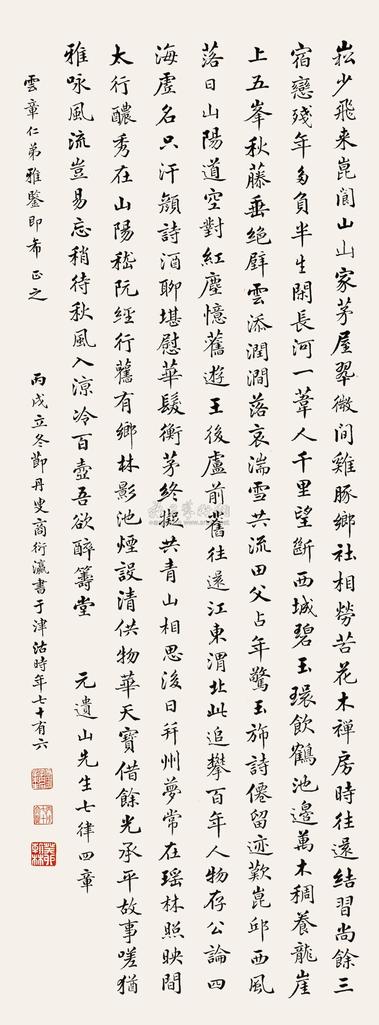 崧少飛来崑閬山山家茅屋翠微間雞豚鄉社相勞苦花木禅房時往還結習尚餘三
宿戀殘年多負半生閑長河一葦人千里望斷西城碧玉環飲鶴池邊萬木稠養龍崖
上五峯秋藤垂絶壁雲添潤澗落哀湍雪共流田父占年驚玉斾詩僊留迹歎崑邱西風
落日山陽道空對紅塵憶舊遊王後盧前舊往還江東渭北此追攀百年人物存公論四
海虛名只汗顔詩酒聊堪慰華髮衡茅終擬共青山相思後日并州夢常在瑶林照映間
太行醲秀在山陽嵇阮經行舊有鄉林影池煙設清供物華天寶借餘光承平故事嗟猶
雅咏風流豈易忘稍待秋風入凉冷百壺吾欲醉籌堂 元遺山先生七律四章
雲章仁弟雅鑒即希正之 丙戌立冬節丹叟商衍瀛書于津沽時年七十有六